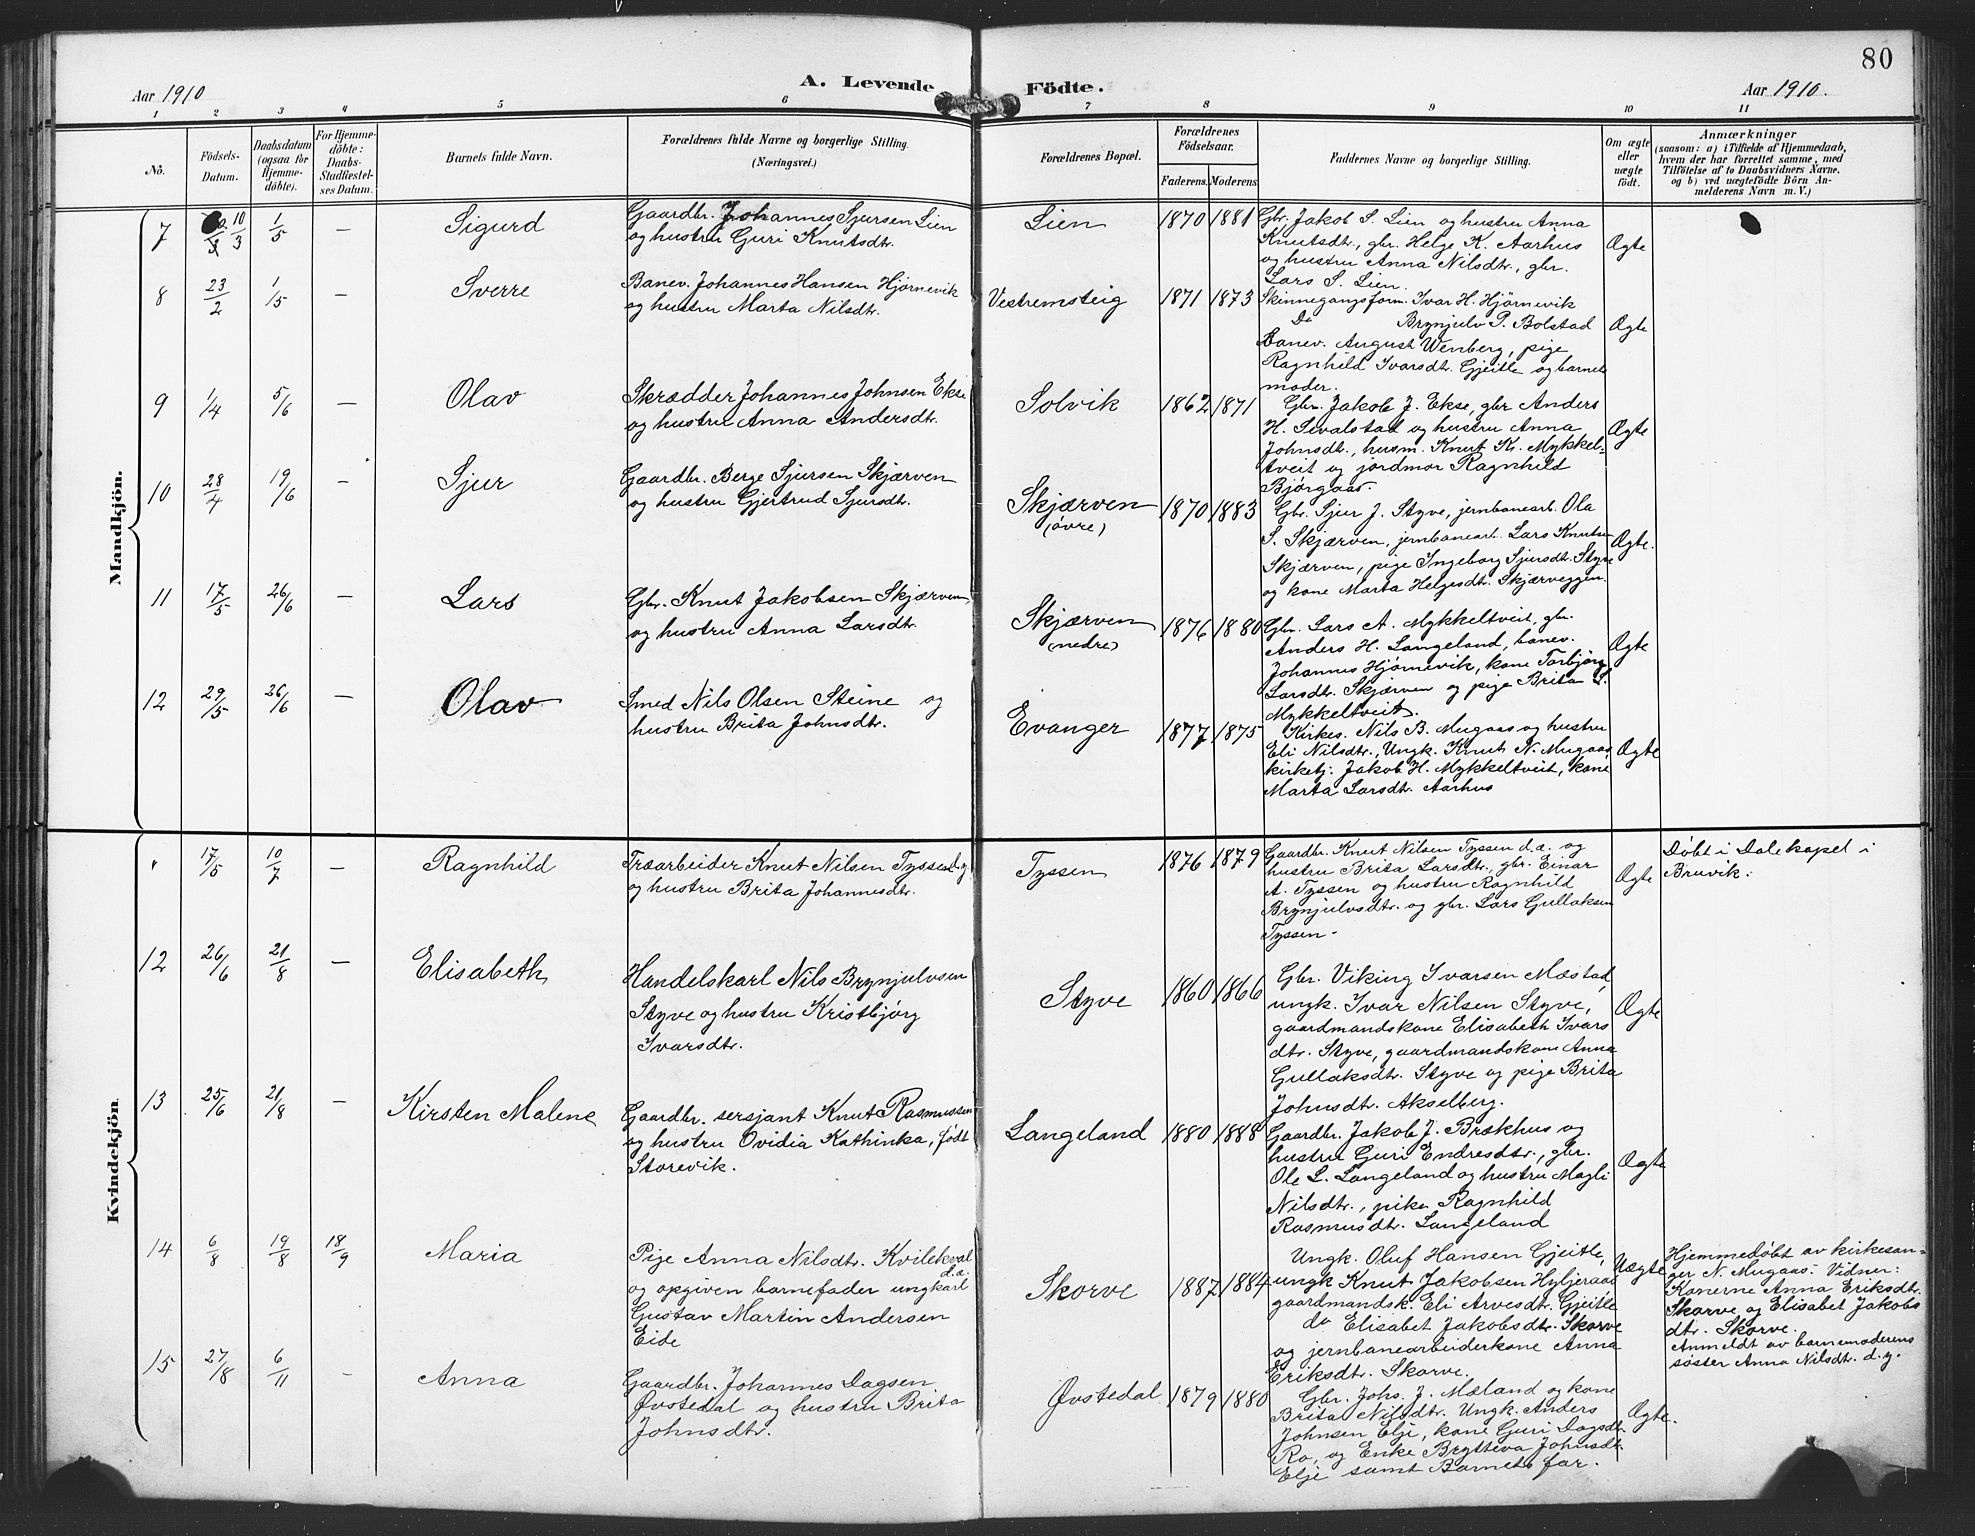 80
Aar 1910
A. Levende
Födte.
Aar 1910.
1 2 3 4 5 6 7 8 9 10 11
No.
Födsels-
Datum.
Daabsdatum
(ogsaa for
Hjemme-
döbte).
For Hjemme-
döbte:
Daabs-
Stadfæstel-
ses Datum.
Barnets fulde Navn.
Forældrenes fulde Navne og borgerlige Stilling.
(Næringsvei.)
Forældrenes Bopæl.
Forældrenes
Födselsaar.
Faderens. Moderens.
Faddernes Navne og borgerlige Stilling.
Om ægte
eller
uægte
födt.
Anmærkninger
(saasom: a) i Tilfælde af Hjemmedaab,
hvem der har forrettet samme, med
Tilföielse af to Daabsvidners Navne,
og b) ved uægtefödte Börn An-
melderens Navn m. V.)
Mandkjön.
7 10/3 1/5 — Sigurd
Gaardbr. Johannes Sjursen Lien
og hustru Guri Knutsdtr.
Lien 1870 1881
Gbr. Jakob S. Lien og hustru Anna
Knutsdtr., gbr. Helge K. Aarhus
og hustru Anna Nilsdtr., gbr.
Lars S. Lien.
Ægte
8 23/2 1/5 — Sverre
Banev. Johannes Hansen Hjørnevik
og hustru Marta Nilsdtr.
Vestremsteig 1871 1873
Skinnegangsform. Ivar H. Hjörnevik
Do Brynjulv P. Bolstad
Banev. August Wenberg, pige
Ragnhild Ivarsdtr. Gjeitle og barnets
moder.
Ægte
9 1/4 5/6 — Olav
Skrædder Johannes Johnsen Ekse
og hustru Anna Andersdtr.
Solvik 1862 1871
Gbr. Jakob J. Ekse, gbr Anders
H. Sevalstad og hustru Anna
Johnsdtr., husm. Knut K. Mykkel-
tveit og jordmor Ragnhild
Bjørgaas.
Ægte
10 28/4 19/6 — Sjur
Gaardbr. Berge Sjursen Skjærven
og hustru Gjertrud Sjursdtr.
Skjærven
(øvre)
1870 1883
Gbr. Sjur J. Styve, jernbanearb. Ola
S. Skjærven, jernbanearb. Lars Knutsen
Skjærven, pige Ingeborg Sjursdtr. Styve
og kone Marta Helgesdtr. Skjærveggen.
Ægte.
11 17/5 26/6 — Lars
Gbr. Knut Jakobsen Skjærven,
og hustru Anna Larsdtr.
Skjærven
(nedre)
1876 1880
Gbr. Lars A. Mykkeltveit, gbr.
Anders H. Langeland, banev.
Johannes Hjørnevik, kone Torbjørg
Larsdtr. Skjærven og pige Brita L.
Mykkeltveit.
Ægte
12 29/5 26/6 — Olav
Smed Nils Olsen Steine og
hustru Brita Johnsdtr.
Evanger 1877 1875
Kirkes. Nils B. Mugaas og hustru
Eli Nilsdtr., Ungk. Knut N. Mugaas
kirketj. Jakob H. Mykkeltveit, kone
Marta Larsdtr. Aarhus
Ægte
Kvindekjön
17/5 10/7 — Ragnhild
Træarbeider Knut Nilsen Tyssen d.y.
og hustru Brita Johannesdtr.
Tyssen 1876 1879
Gaardbr. Knut Nilsen Tyssen d.æ. og
hustru Brita Larsdtr., gbr. Einar
A. Tyssen og hustru Ragnhild
Brynjulvsdtr. og gbr. Lars Gullaksen
Tyssen.
Ægte
Døbt i Dale kapel i
Bruvik.
12 26/6 21/8 — Elisabeth
Handelskarl Nils Brynjulvsen
Styve og hustru Kristbjörg
Ivarsdtr.
Styve 1860 1866
Gbr. Viking Ivarsen Mæstad,
ungk. Ivar Nilsen Styve,
gaardmandskone Elisabeth Ivars
dtr. Styve, gaardmandskone Anna
Gullaksdtr. Styve og pige Brita
Johnsdtr. Akselberg.
Ægte
13 25/6 21/8 — Kirsten Malene
Gaardbr. sersjant Knut Rasmussen
og hustru Ovidia Kathinka, født
Storevik.
Langeland 1880 1888
Gaardbr. Jakob J. Brækhus og
hustru Guri Endresdtr., gbr.
Ole L. Langeland og hustru Magli
Nilsdtr., pike Ragnhild
Rasmusdtr. Langeland
Ægte
14 6/8 19/8 18/9 Maria
Pige Anna Nilsdtr. Kvilekval
d.æ.
og opgiven barnefader ungkarl
Gustav Martin Andersen
Eide
Skorve 1887 1884
Ungk. Oluf Hansen Gjeitle,
ungk Knut Jakobsen Hybjeraas
gaardmandsk. Eli Arvesdtr. Gjeitle
do Elisabet Jakobsdtr. Skorve
og jernbanearbeiderkone Anna
Eriksdtr. Skorve.
Uægte
Hjemmedøbt av kirkesan-
ger N. Mugaas. Vidner:
Konerne Anna Eriksdtr.
Skorve og Elisabet Jakobs
dtr. Skorve.
Anmeldt av barnemoderens
søster Anna Nilsdtr. d.y.
15 27/8 6/11 - Anna
Gaardbr. Johannes Dagsen
Øvstedal og hustru Brita
Johnsdtr.
Øvstedal 1879 1880
Gbr. Johs. J. Mæland og kone
Brita Nilsdtr. Ungk. Anders
Johnsen Elje, kone Guri Dagsdtr.
Ro, og Enke Brytteva Johnsdtr.
Elje samt Barnets far.
Ægte.